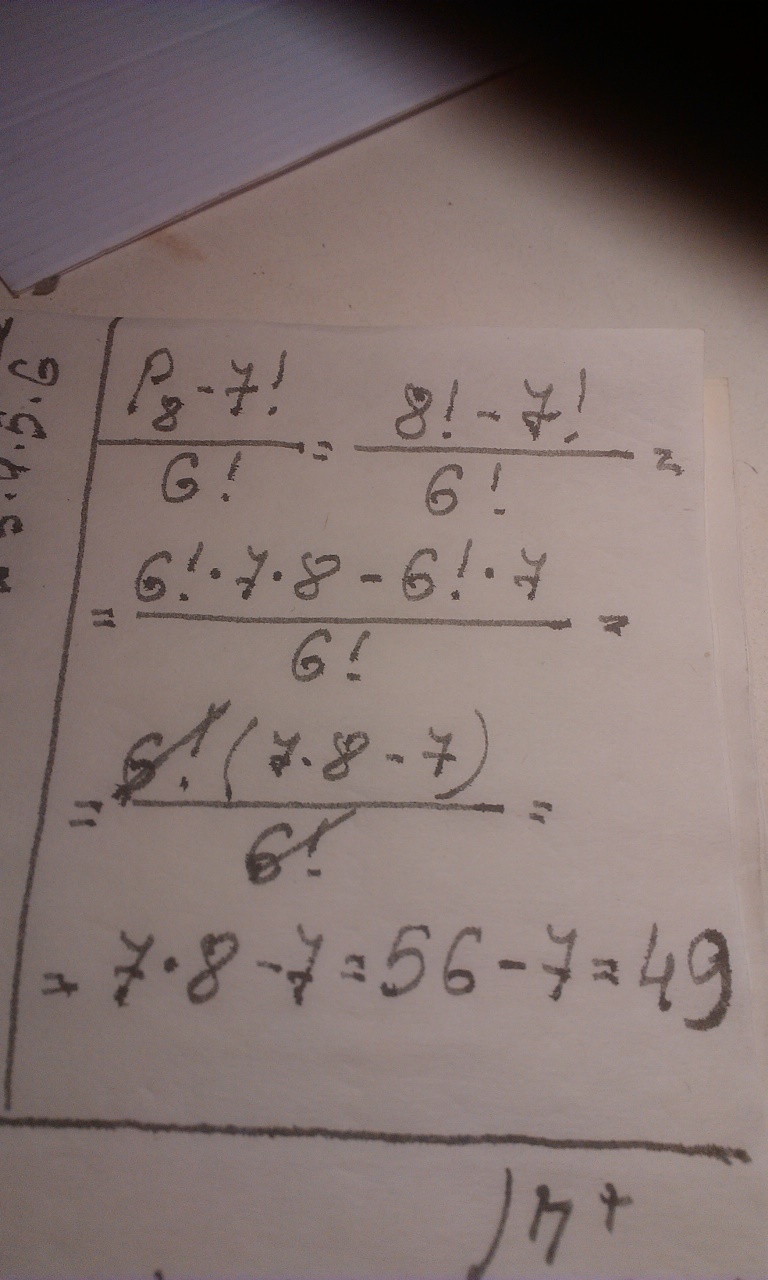 P₈ - 7! / 6! = 8! - 7! / 6! =
= 6! · 7 · 8 - 6! · 7 / 6! =
= 6! (7 · 8 - 7) / 6! =
= 7 · 8 - 7 = 56 - 7 = 49